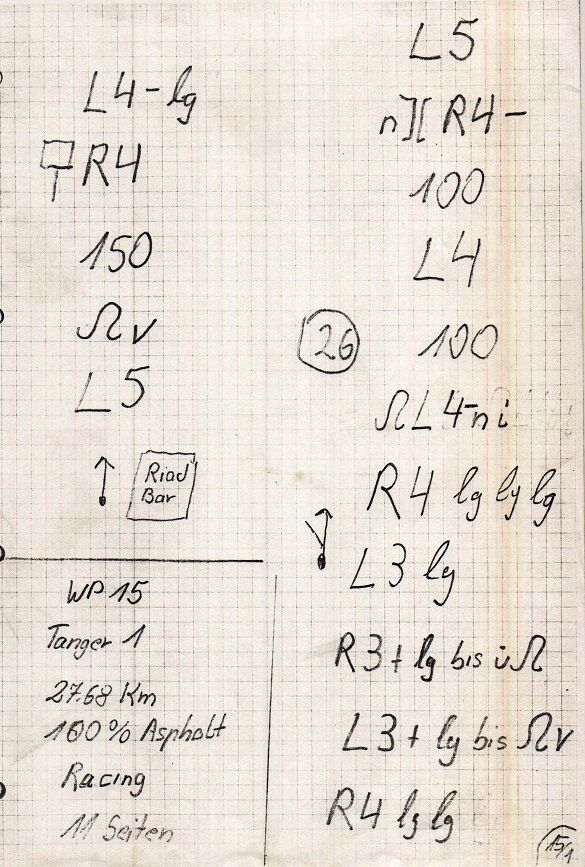 L4-lg
R4
150
Ω v
L5
Riad
Bar
WP 15
Tanger 1
27.68 Km
100% Asphalt
Racing
11 Seiten
L5
n][ R4-
100
L4
26
100
Ω L4-n i
R4 lg lg lg
L3 lg
R3+ lg bis ü Ω
L3+ lg bis Ω v
R4 lg lg
15/1